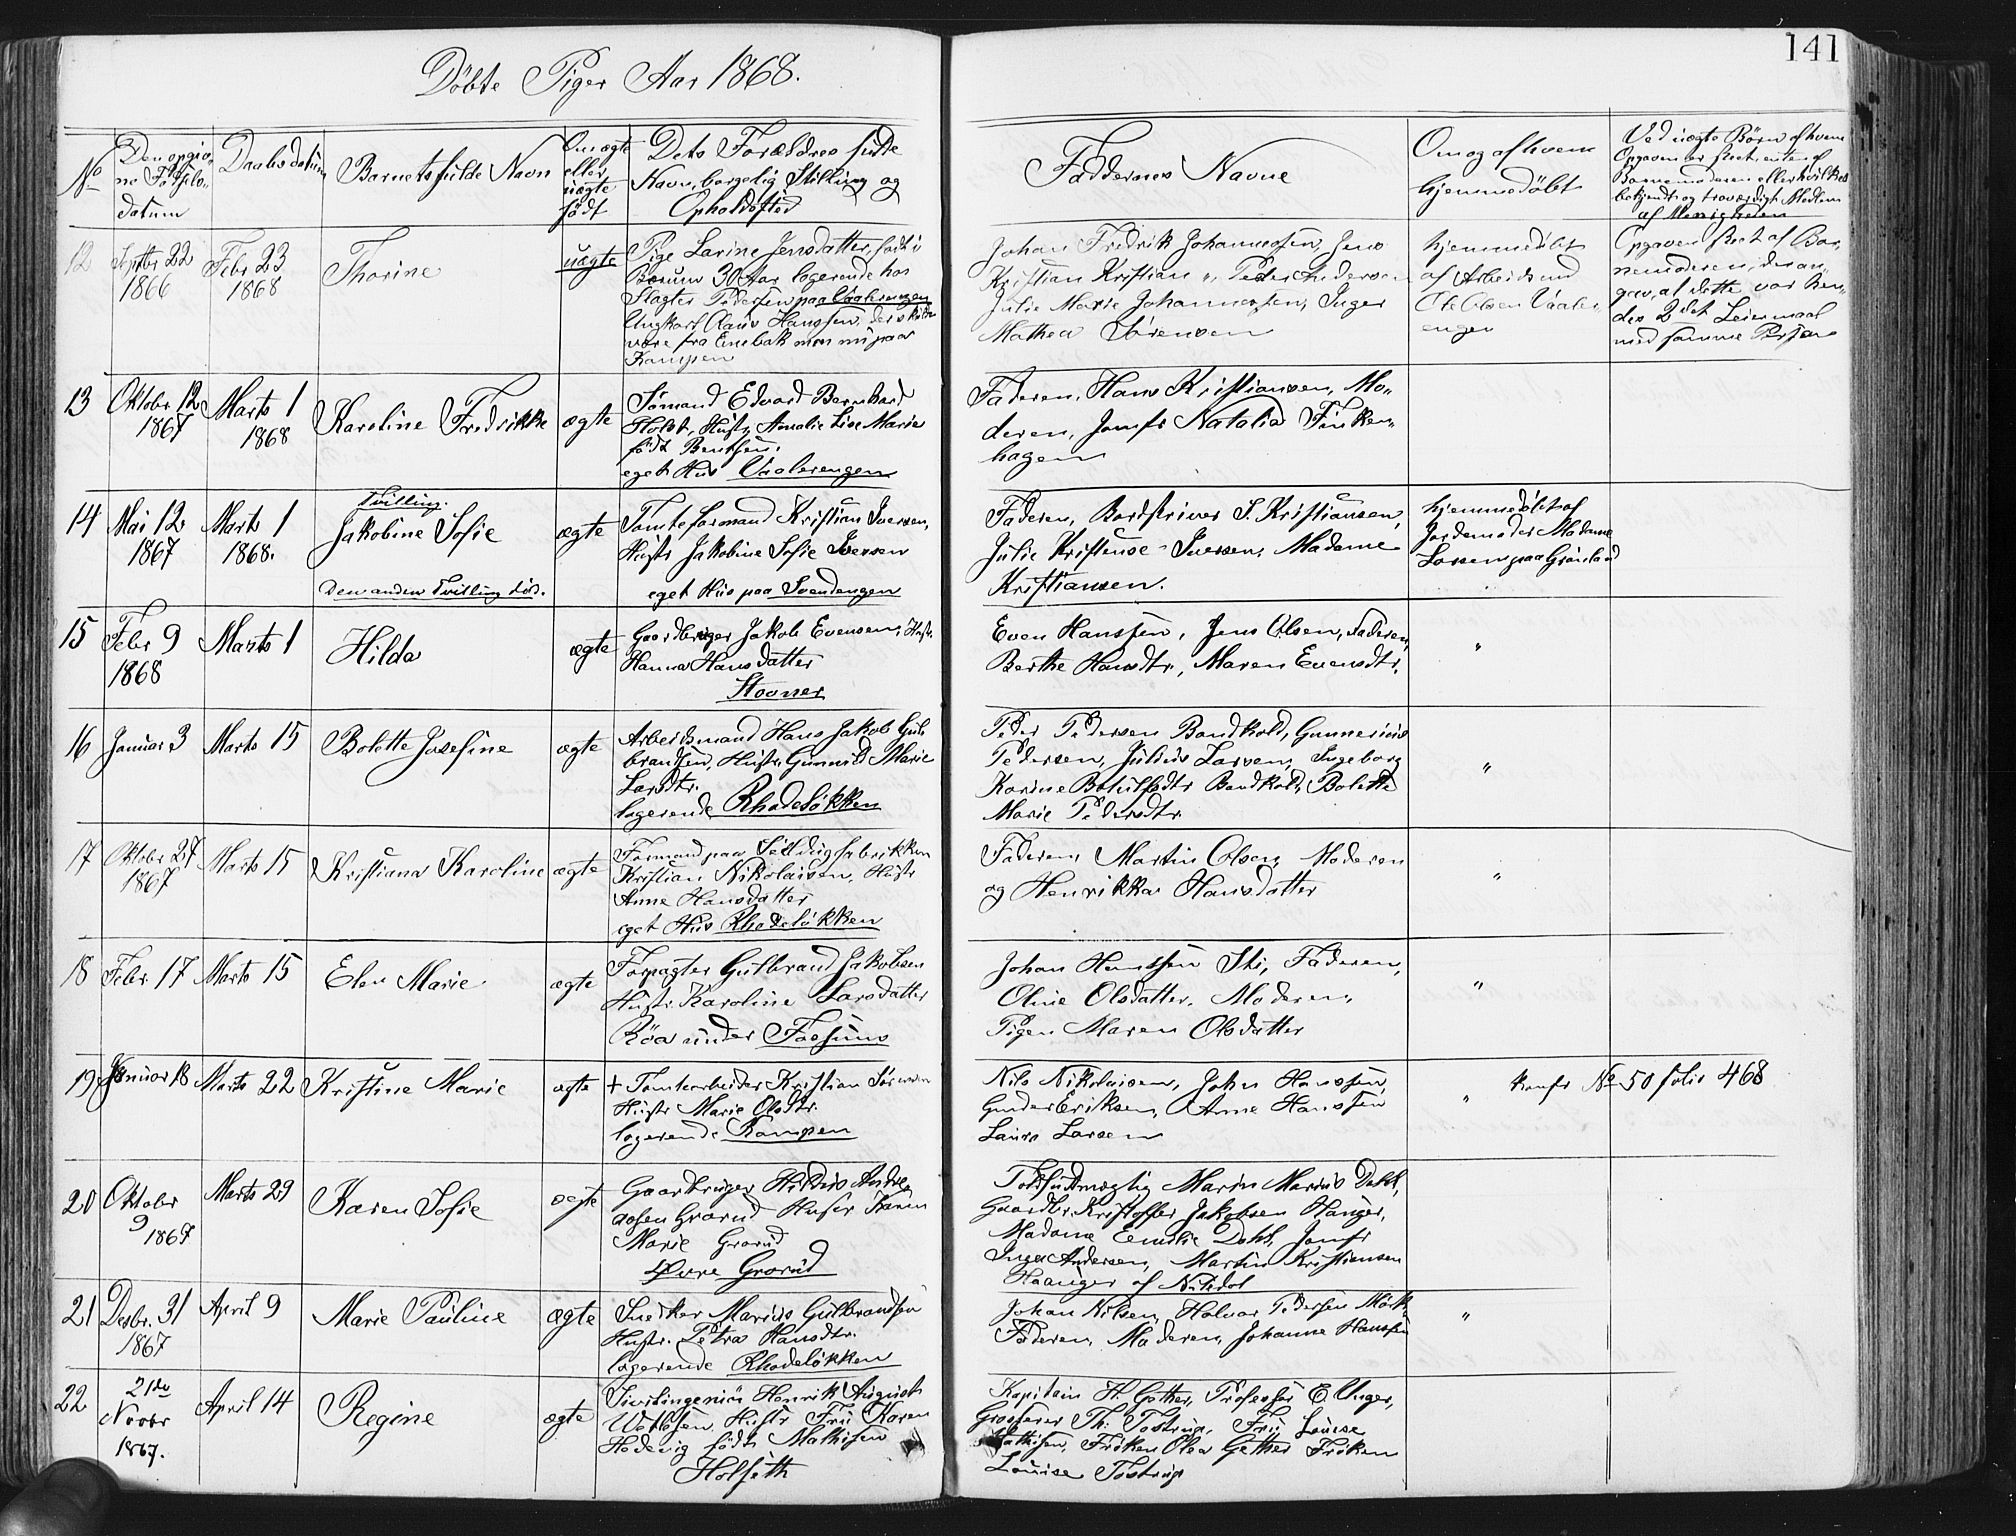 141
Döbte Piger Aar 1868.
No
Den opgiv-
ne Födsels-
datum
Daabsdatum
Barnets fulde Navn
Om ægte
eller
uægte
født
Dets Forældres fulde
Navn, borgerlig Stilling og
Opholdssted
Faddernes Navne
Om og af hvem
hjemmedøbt
Ved uægte Børn af hvem
Opgaven er skeet, enten af
Barnemoderen eller hvilket
bekjendt og troværdigt Medlem
af Menigheden
12
Septbr 22
1866
Febr 23
1868
Thorine
uægte
Pige Larine Jensdatter, født i
Bærum 30 Aar logerende hos
Slagter Pedersen paa Vaalerengen
Ungkarl Claus Hanssen, der skulde
være fra Enebak men nu paa
Kampen
Johan Fredrik Johannessen, Jens
Kristian Kristian „ Peder Andersen
Julie Marie Johannessen, Inger
Mathea Sørensen
hjemmedøbt
af Arbeidsmd
Ole Olsen Vaaler-
engen
Opgaven skeet af Bar-
nemoderen, der an-
gav, at dette var hen-
des 2det Leiermaal
med samme Person
13
Oktobr 12
1867
Marts 1
1868
Karoline Fredrikke
ægte
Sømand Edvard Bernhard
Holst, Hustr. Amalie Lise Marie
født Bentsen.
eget Hus Vaalerengen
Faderen, Hans Kristiansen, Mo-
deren, Jomfr Natalia Finken-
hagen
14
Mai 12
1867
Marts 1
1868.
Tvilling.
Jakobine Sofie
Den anden Tvilling død.
ægte
Tomteformand Kristian Iversen,
Hustr Jakobine Sofie Iversen
eget Hus paa Svendengen
Faderen, Bordskriver S. Kristiansen,
Julie Kristense Iversen, Madame
Kristiansen.
hjemmedøbt af
Jordemoder Madame
Larsen paa Grønland
15
Febr 9
1868
Marts 1
Hilda
ægte
Gaardbruger Jakob Evensen, Hustr.
Hanna Hansdatter
Stovner
Even Hanssen, Jens Olsen, Faderen,
Berthe Hansdtr., Maren Evensdtr.
"
16
Januar 3
Marts 15
Bolette Josefine
ægte
Arbeidsmand Hans Jakob Gul-
bransen, Hustr. Gunnild Marie
Larsdtr.
logerende Rhodeløkken
Peder Pedersen Bandkold, Gunnerius
Pedersen, Julius Larsen, Ingeborg
Karine Botulfsdtr Bandkold, Bolette
Marie Pedersdtr.
"
17
Oktobr 27
1867
Marts 15
Kristiana Karoline
ægte
Formand paa Sildugfabrikken
Kristian Nikolaisen, Hustr
Anne Hansdatter
eget Hus Rhodeløkken
Faderen, Martin Olsen, Moderen
og Henrikka Hansdatter
"
18
Febr. 17
Marts 15
Elen Marie
ægte
Forpagter Gulbrand Jakobsen
Hustr. Karoline Larsdatter
Röa under Fossum
Johan Hanssen Ski, Faderen,
Oline Olsdatter. Moderen,
Pigen Maren Olsdatter
"
19
Januar 18
Marts 22
Kristine Marie
ægte
+ Tomtearbeider Kristian Sørensen
Hustr Marie Olsdtr.
logerende Kampen
Nils Nikolaisen, John Hanssen,
Gunder Eriksen, Anne Hanssen
Laura Larsen
"
Konfr No 50 folio 468
20
Oktobr
9
1867
Marts 29
Karen Sofie
ægte
Gaardbruger Andre-
assen Grorud Hustr Karen
Marie Grorud
Øvre Grorud
Marin Marius Dahl,
Gaardbr. Kristoffer Jakobsen Hauger,
Madame Emilie Dahl, Jomfr
Inger Andersen, Martin Kristiansen
Haanger af Nitedal
21
Desbr. 31
1867
April 9
Marie Pauline
ægte
Snedker Marius Gulbrandsen
Hustr. Petra Hansdtr.
logerende Rhodeløkken
Johan Nilsen, Halvor Pedersen Mørk,
Faderen, Moderen, Johanne Hanssen
"
22
21de
Novbr
1867.
April 14
Regine
ægte
Sivilingeniör Henrik August
Hustr Fru Karen
Hedevig født Mathisen
Holseth
Kapitein H. Gether, Professor E. Unger,
Grosserer Th: Tostrup, Fru Louise
Mathisen, Frøken Olea Gether Frøken
Louise Tostrup